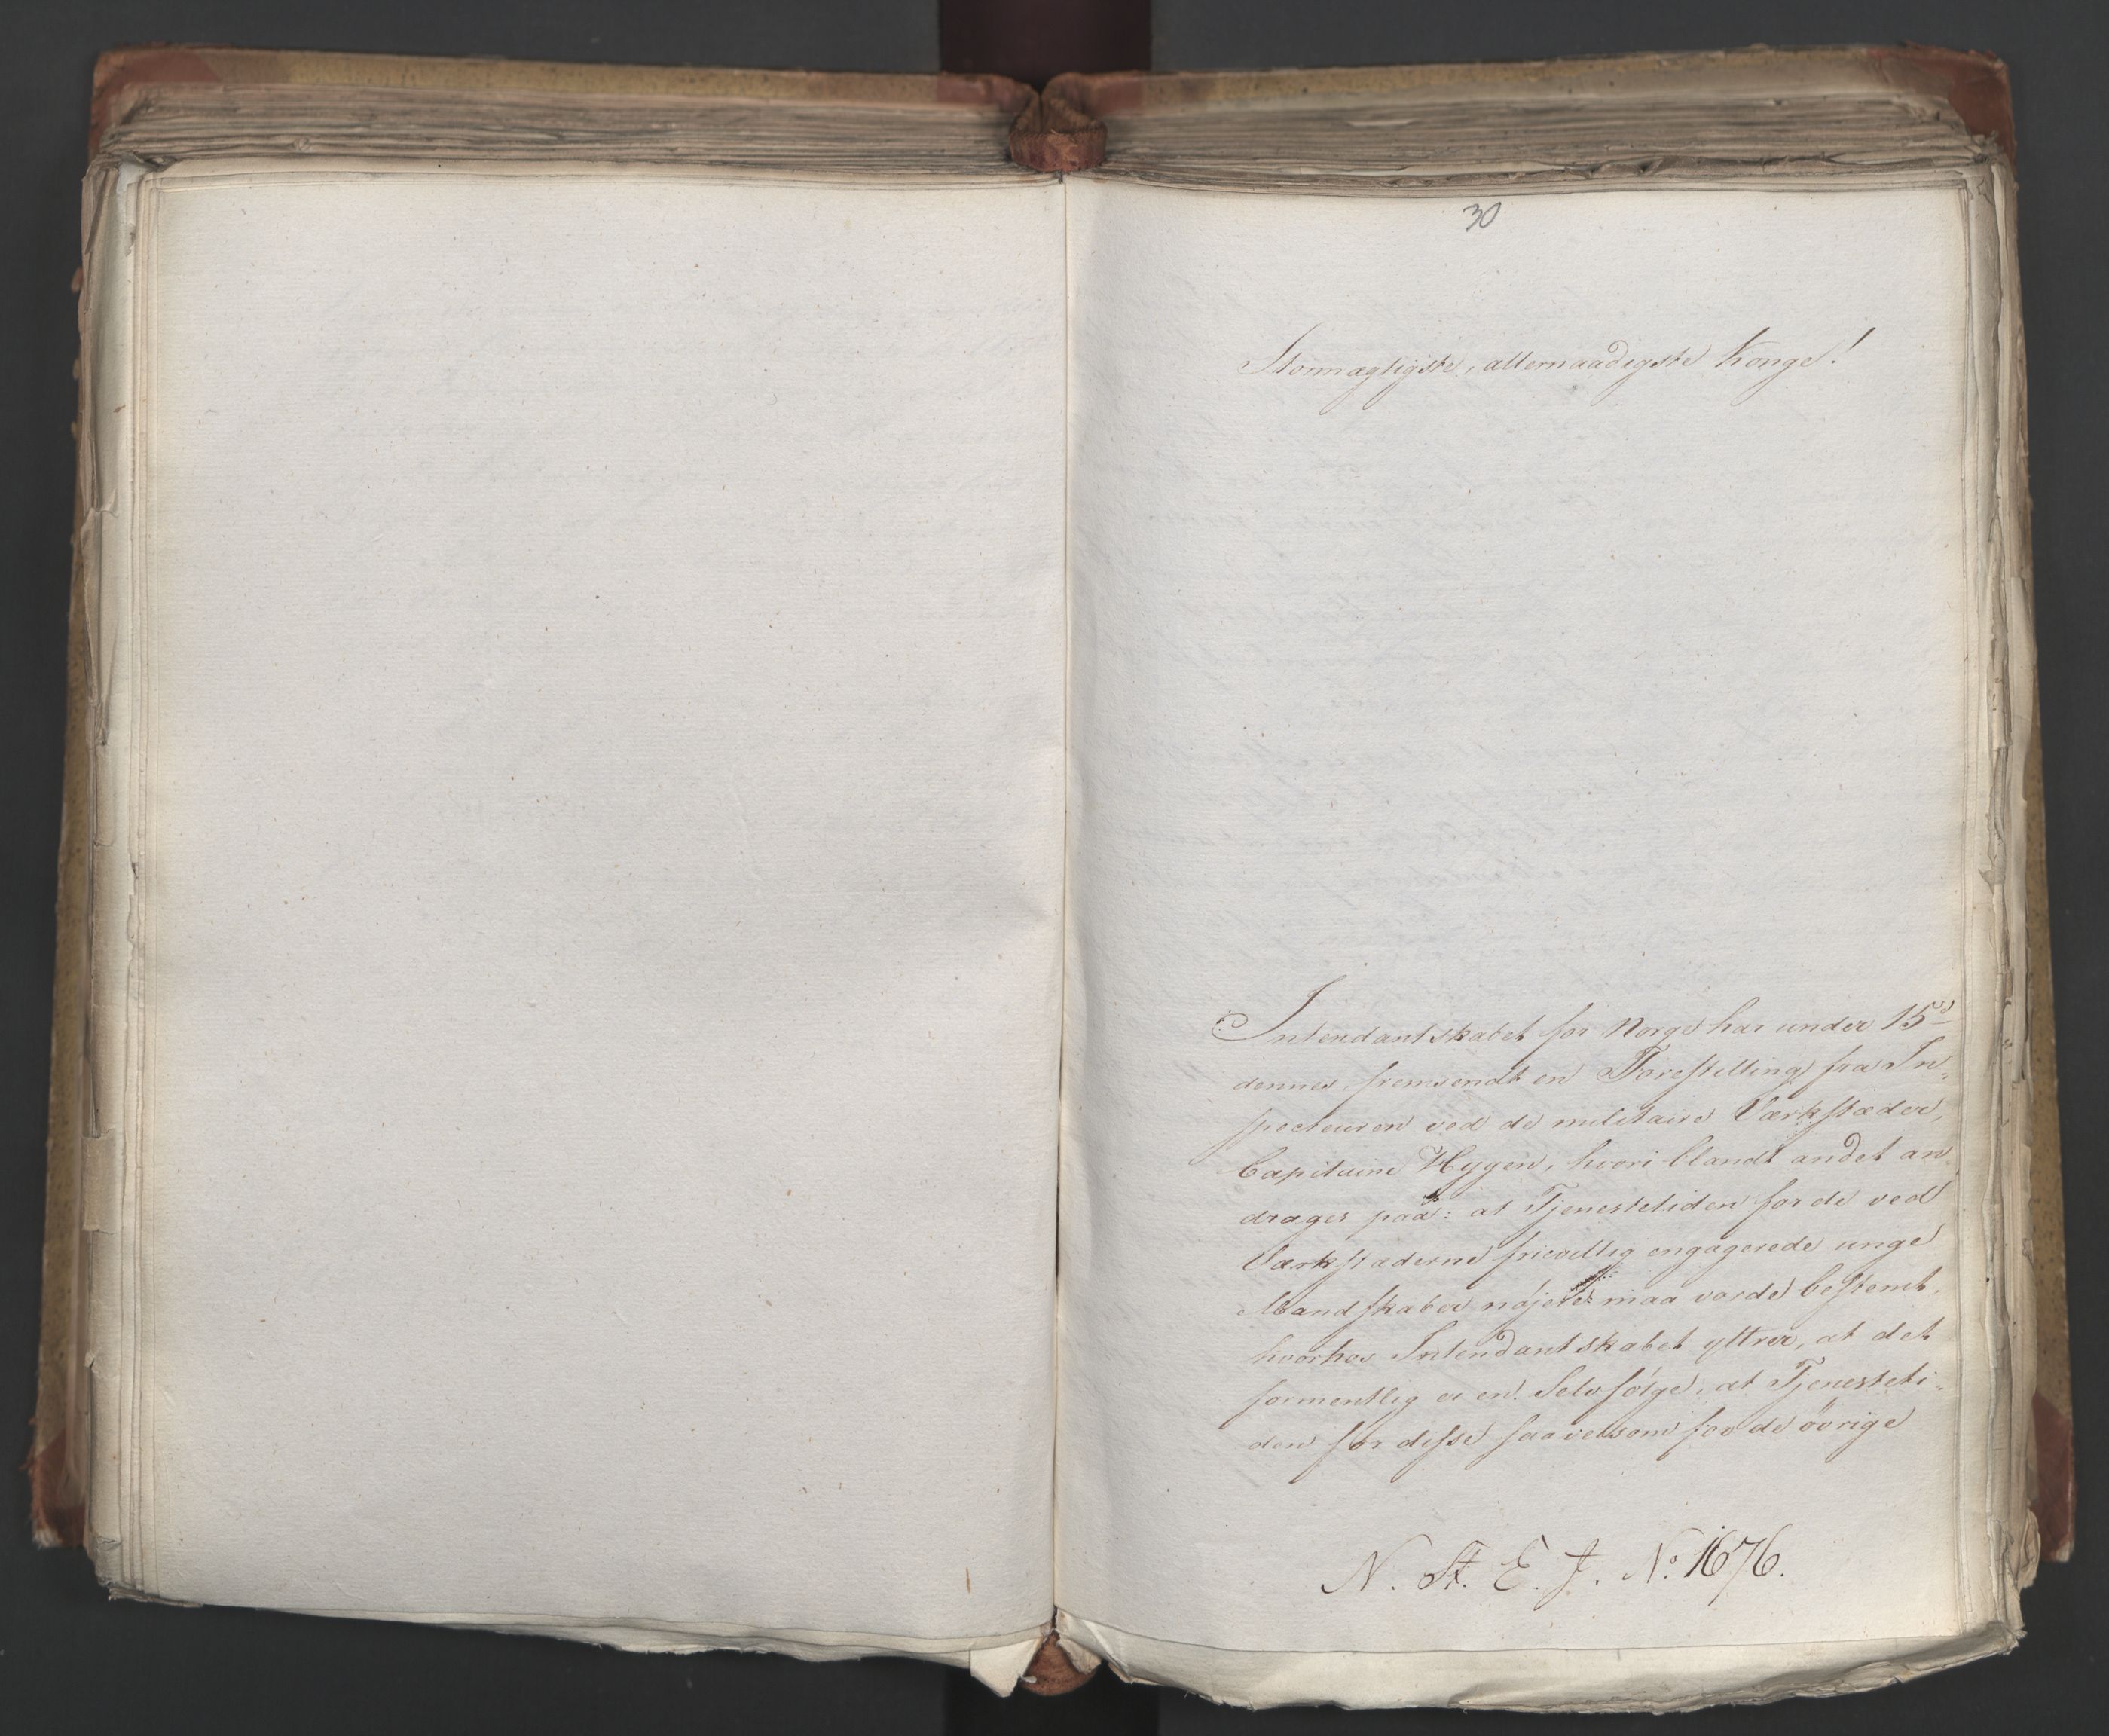 30
Stormægtigste, allernaadigste Konge!
Intendantskabet for Norge har under 15de
dennes, fremsendt en Forestilling fra In-
specteuren ved de militaire Værkstæder,
Capitaine Hygen, hvori blandt andet an-
drages paa: at Tjenestetiden for de ved
Værkstæderne frivillig engagerede unge
Mandskaber nøjere maa vorde bestemt,
hvorhos Intendantskabet yttrer, at det
formentlig er en Selvfølge, at Tjenesteti-
den for disse saavelsom for de øvrige
N. St. E. J. No. 1676.